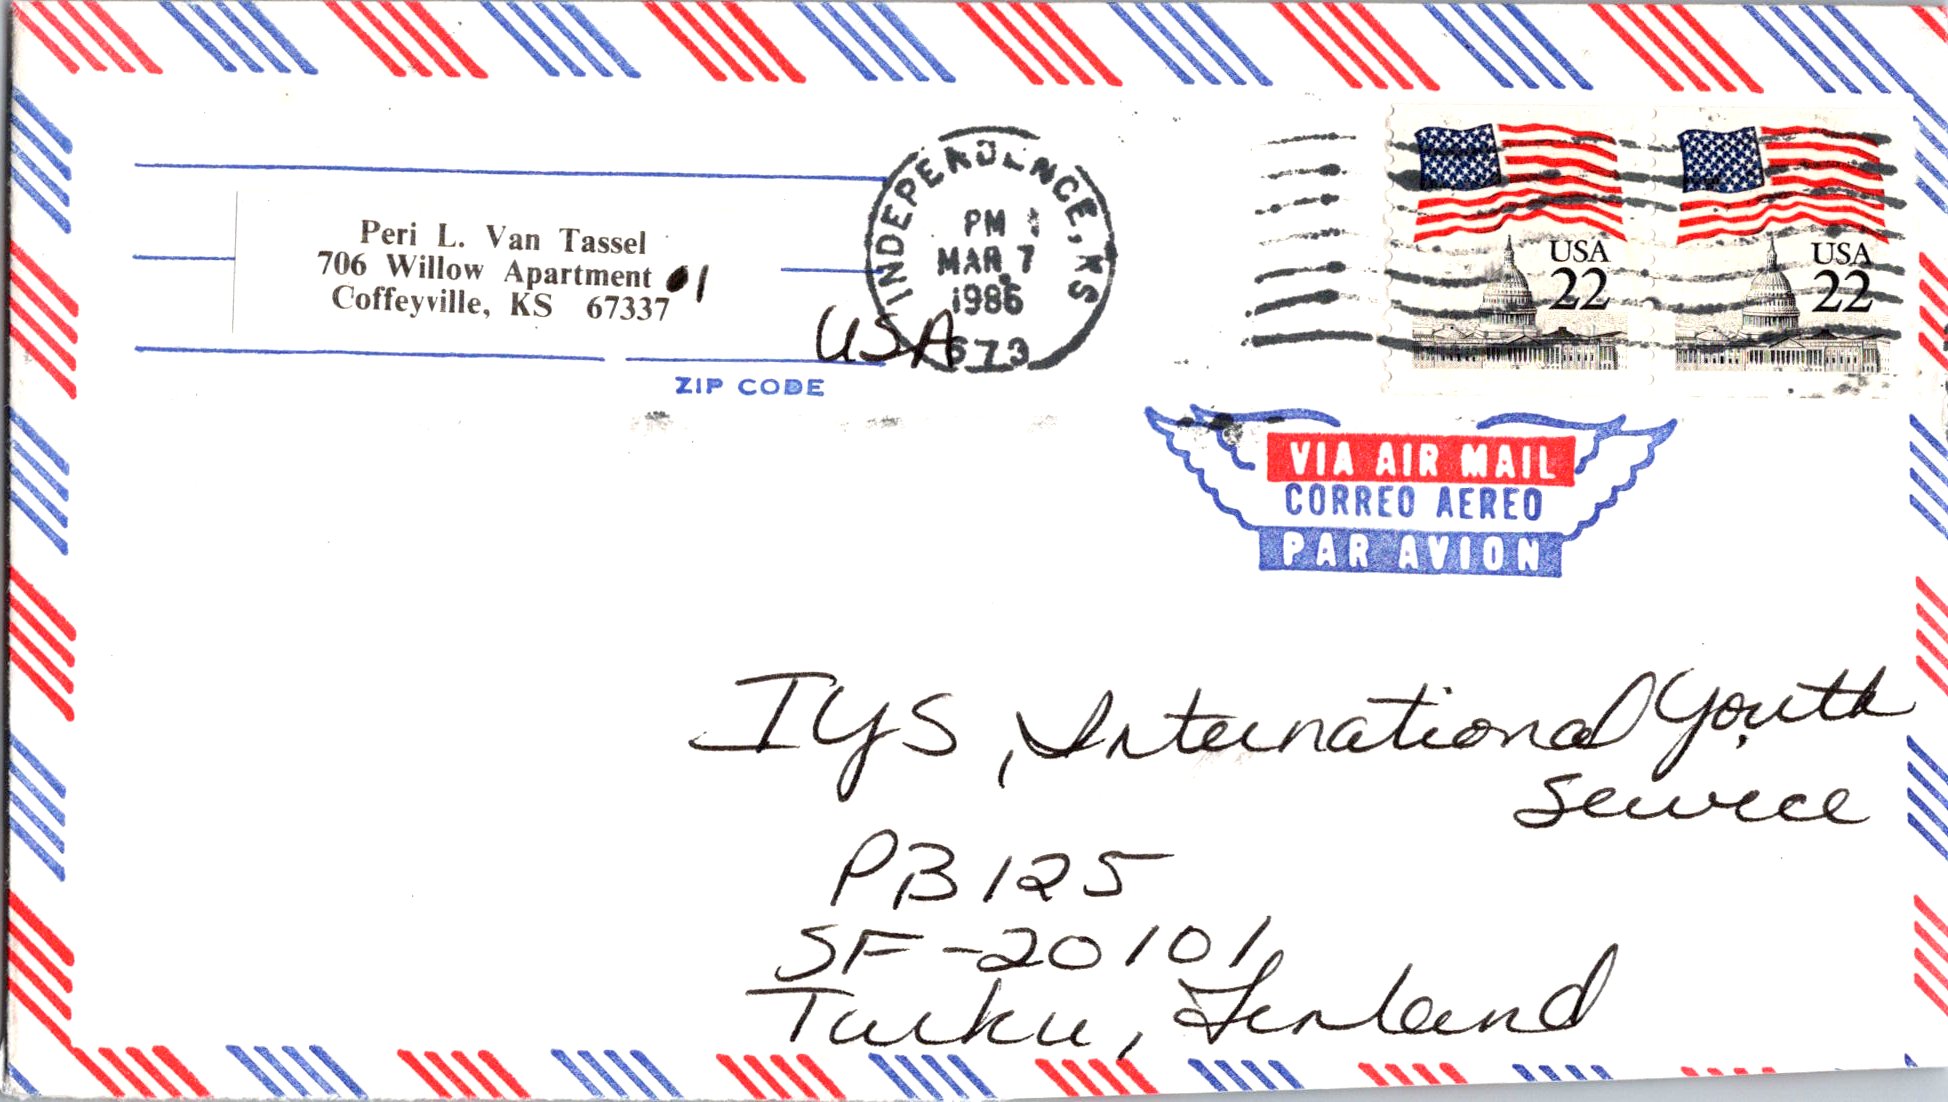 Peri L. Van Tassel
706 Willow Apartment 1
Coffeyville, KS 67337
USA
ZIP CODE
INDEPENDENCE, KS
PM
MAR 7
1986
673
USA
22
USA
22
VIA AIR MAIL
CORREO AEREO
PAR AVION
IYS, International Youth
Service
PB 125
SF-20101
Turku, Finland